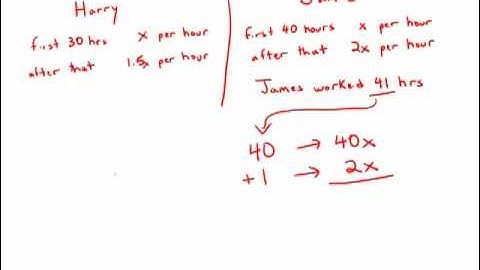 Harry
first 30 hrs x per hour
after that 1.5x per hour
first 40 hours x per hour
after that 2x per hour
James worked 41 hrs
40 → 40x
+1 → 2x